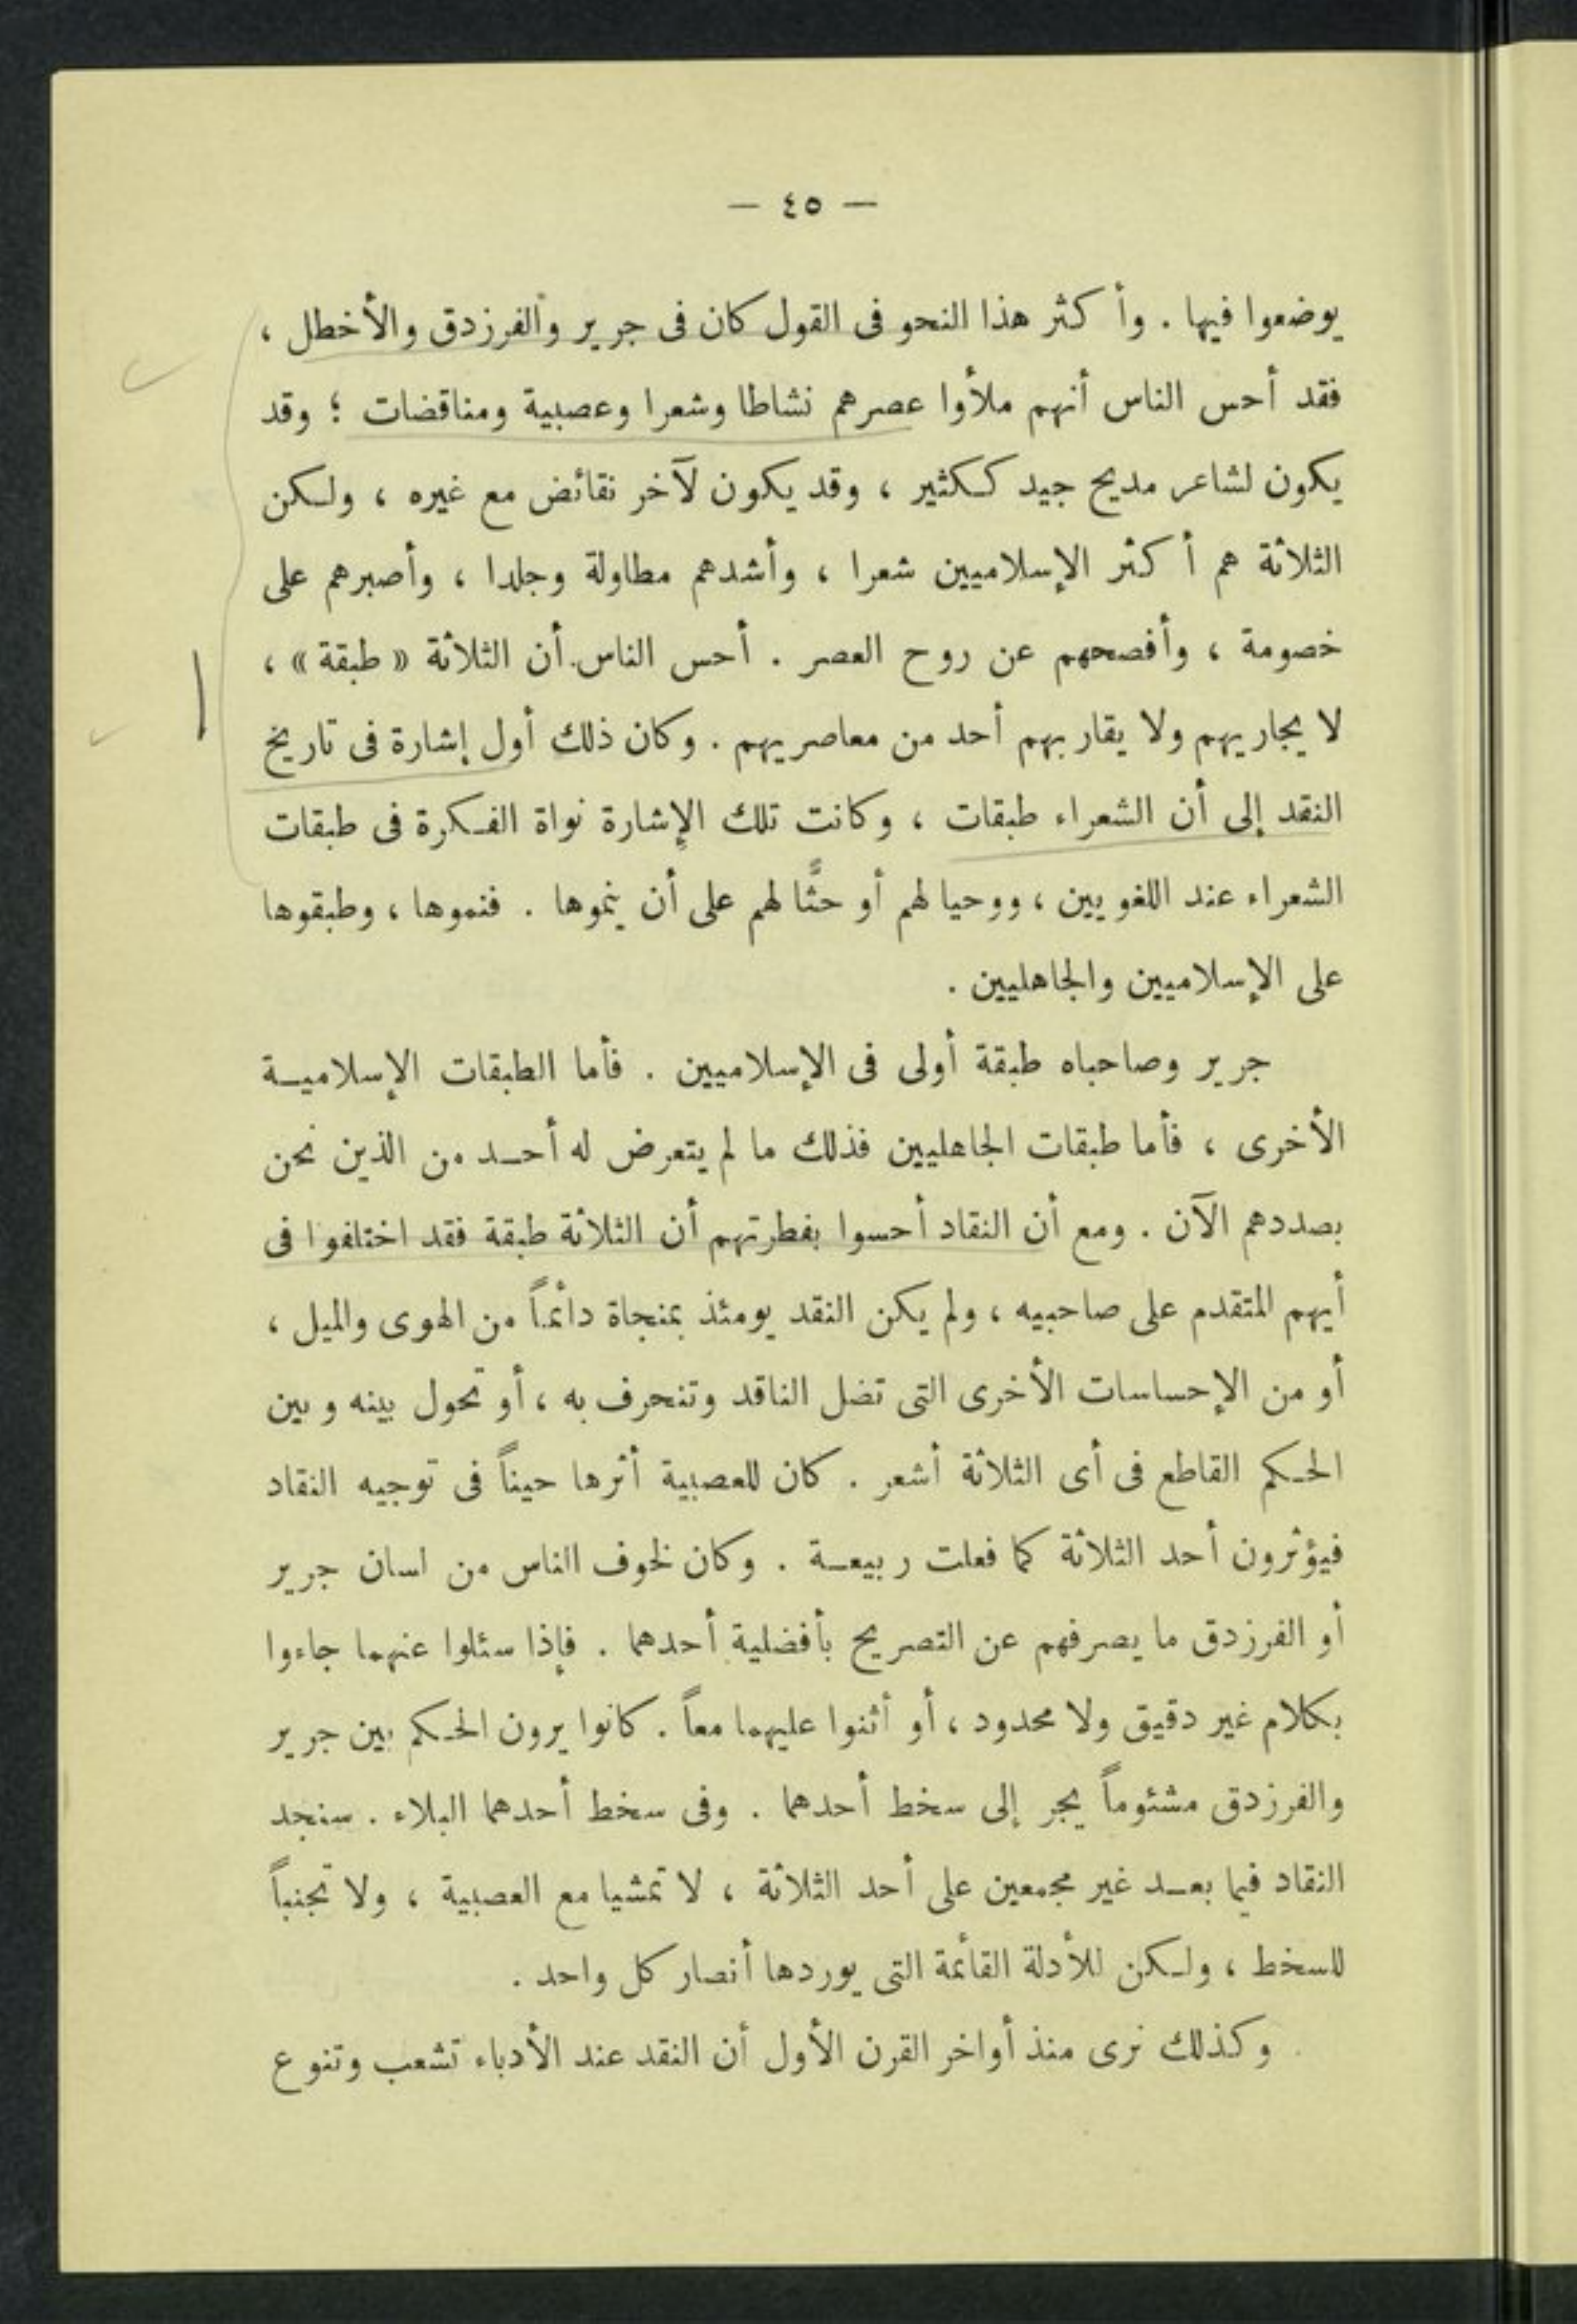 — ٤٥ —
يوضعوا فيها . وأكثر هذا النحو فى القول كان فى جرير والفرزدق والأخطل ،
فقد أحس الناس أنهم ملأوا عصرهم نشاطا وشعرا وعصبية ومناقضات ؛ وقد
يكون لشاعر مديح جيد ككثير ، وقد يكون لآخر نقائض مع غيره ، ولكن
الثلاثة هم أكثر الإسلاميين شعرا ، وأشدهم مطاولة وجلدا ، وأصبرهم على
خصومة ، وأفصحهم عن روح العصر . أحس الناس أن الثلاثة « طبقة » ،
لا يجاريهم ولا يقاربهم أحد من معاصريهم . وكان ذلك أول إشارة فى تاريخ
النقد إلى أن الشعراء طبقات ، وكانت تلك الإشارة نواة الفكرة فى طبقات
الشعراء عند اللغويين ، ووحيا لهم أو حثًّا لهم على أن ينموها . فنموها ، وطبقوها
على الإسلاميين والجاهليين .
جرير وصاحباه طبقة أولى فى الإسلاميين . فأما الطبقات الإسلاميـة
الأخرى ، فأما طبقات الجاهليين فذلك ما لم يتعرض له أحـد من الذين نحن
بصددهم الآن . ومع أن النقاد أحسوا بفطرتهم أن الثلاثة طبقة فقد اختلفوا فى
أيهم المتقدم على صاحبيه ، ولم يكن النقد يومئذ بمنجاة دائماً من الهوى والميل ،
أو من الإحساسات الأخرى التى تضل الناقد وتنحرف به ، أو تحول بينه وبين
الحكم القاطع فى أى الثلاثة أشعر . كان للعصبية أثرها حيناً فى توجيه النقاد
فيؤثرون أحد الثلاثة كما فعلت ربيعـة . وكان لخوف الناس من لسان جرير
أو الفرزدق ما يصرفهم عن التصريح بأفضلية أحدهما . فإذا سئلوا عنهما جاءوا
بكلام غير دقيق ولا محدود ، أو أثنوا عليهما معاً . كانوا يرون الحكم بين جرير
والفرزدق مشئوماً يجر إلى سخط أحدهما . وفى سخط أحدهما البلاء . سنجد
النقاد فيما بعـد غير مجمعين على أحد الثلاثة ، لا تمشيا مع العصبية ، ولا تجنباً
للسخط ، ولكن للأدلة القائمة التى يوردها أنصار كل واحد .
وكذلك نرى منذ أواخر القرن الأول أن النقد عند الأدباء تشعب وتنوع